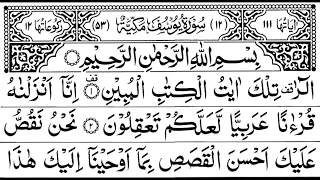 اٰيَاتُهَا ١١١ (١٢) سُوْرَةُ يُوْسُفَ مَكِّيَّةٌ (٥٣) رُكُوْعَاتُهَا ١٢
بِسْمِ اللّٰهِ الرَّحْمٰنِ الرَّحِيْمِ
الٓرٰ ۚ تِلْكَ اٰيٰتُ الْكِتٰبِ الْمُبِيْنِ ۟ اِنَّاۤ اَنْزَلْنٰهُ
قُرْءٰنًا عَرَبِيًّا لَّعَلَّكُمْ تَعْقِلُوْنَ ۟۲ نَحْنُ نَقُصُّ
عَلَيْكَ اَحْسَنَ الْقَصَصِ بِمَاۤ اَوْحَيْنَاۤ اِلَيْكَ هٰذَا